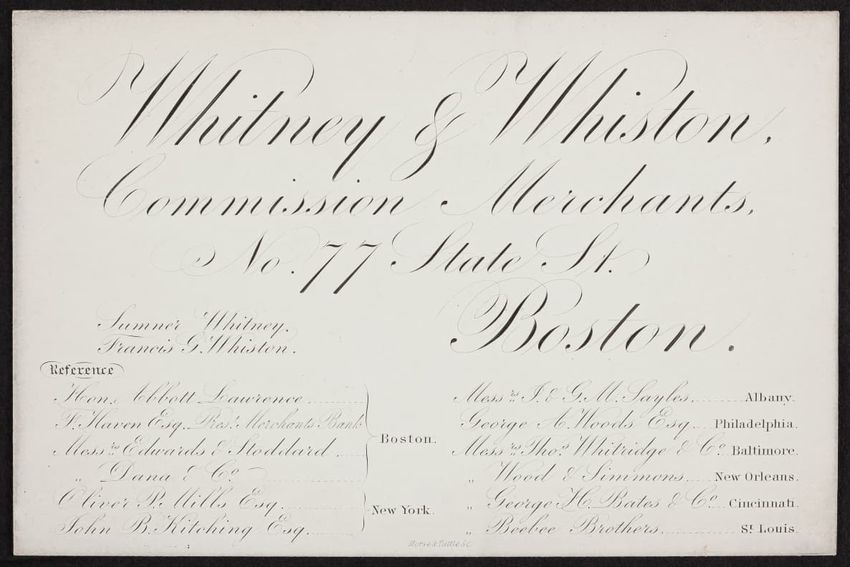 Whitney & Whiston,
Commission Merchants,
No. 77 State St.
Boston.
Sumner Whitney.
Francis G. Whiston.
Reference
Hon. Abbott Lawrence
F. Haven Esq. Prest. Merchants Bank
Messrs Edwards & Stoddard
" Dana & Co.
Boston.
Oliver P. Mills Esq.
John B. Kitching Esq.
New York.
Messrs I. & G.M. Sayles. Albany.
George A. Woods Esq. Philadelphia.
Messrs Thos. Whitridge & Co. Baltimore.
" Wood & Simmons. New Orleans.
" George H. Bates & Co. Cincinnati.
" Beebee Brothers. St. Louis.